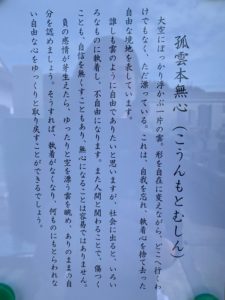 孤雲本無心（こうんもとむしん）
大空にぽっかり浮ぶ一片の雲。形を自在に変えながら、どこへ行くわ
けでもなく、ただ漂っている。これは、自我を忘れ、執着心を捨て去った
自由な境地を表しています。
誰しも雲のように自由でありたいと思いますが、社会に出ると、いろい
ろなものに執着し、不自由になります。また人間と関わることで、傷つく
ことも、自信を無くすこともあり、無心になることは容易ではありません。
負の感情が芽生えたら、ゆったりと空を漂う雲を眺め、ありのままの自
分を認めましょう。そうすれば、執着がなくなり、何ものにもとらわれな
い自由な心をゆっくりと取り戻すことができるでしょう。